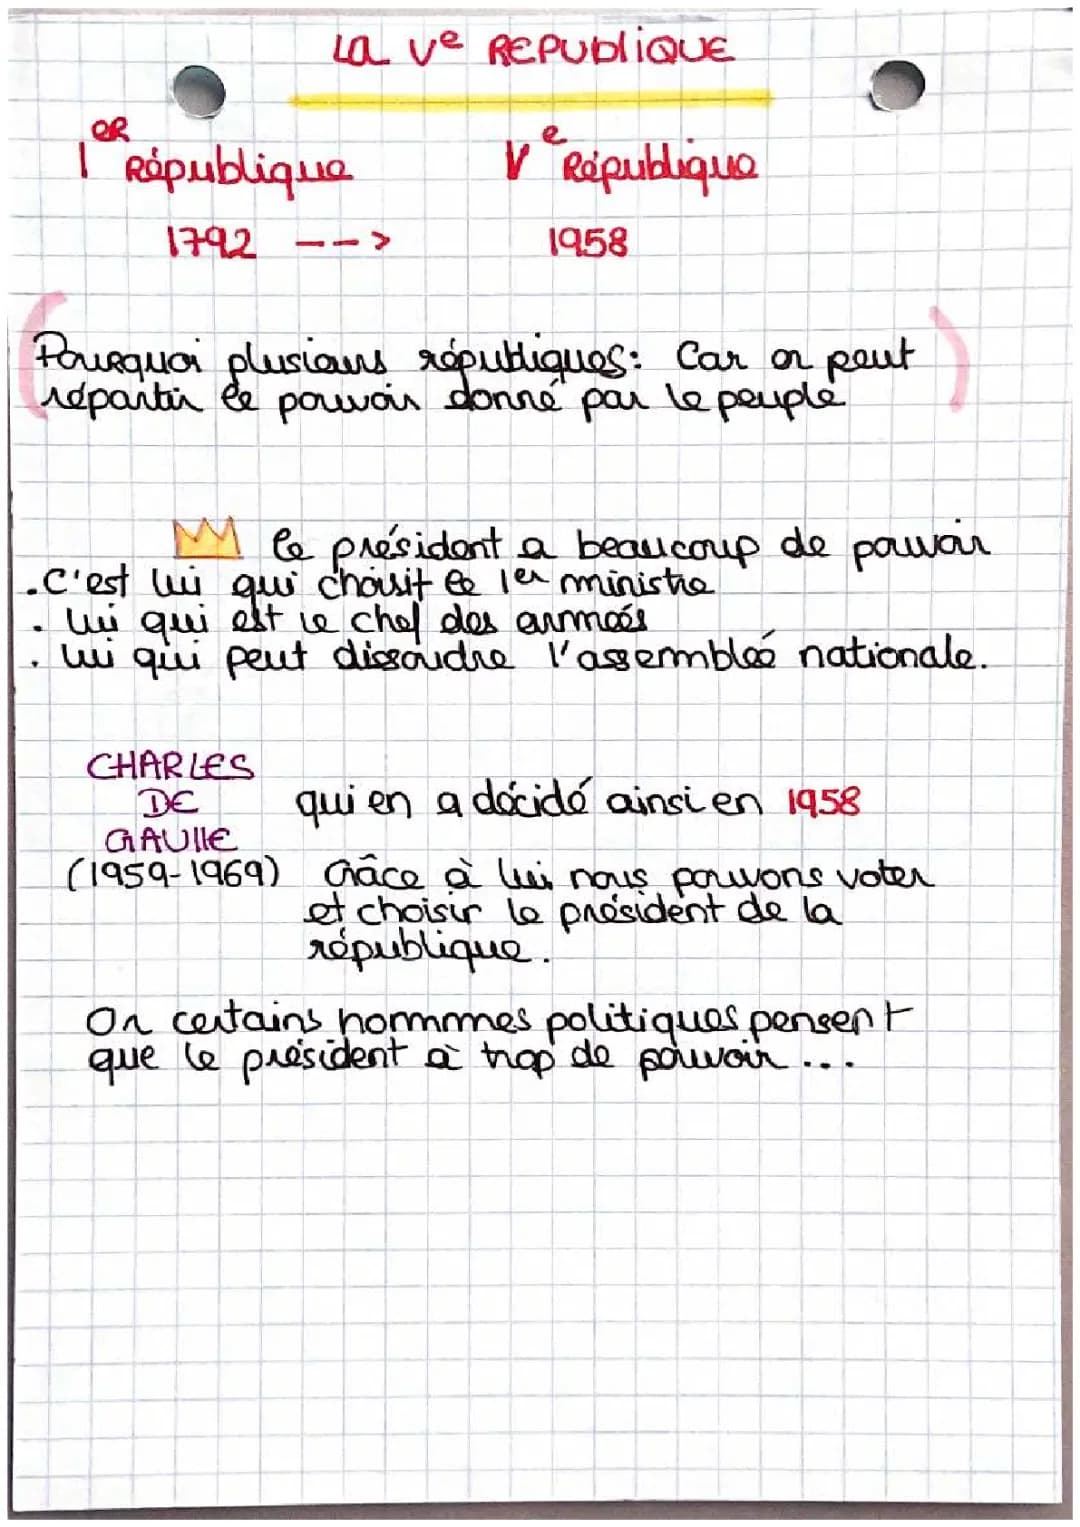 La Ve REPUBLIQUE
1er République Ve République
1792 ---> 1958
Pourquoi plusieurs républiques: Car on peut
répartir le pouvoir donné par le peuple
le président a beaucoup de pouvoir
.C'est lui qui choisit le 1er ministre
. lui qui est le chef des armées
. lui qui peut dissoudre l'assemblée nationale.
CHARLES
DE
GAULLE
qui en a décidé ainsi en 1958
(1959-1969) Grâce à lui nous pouvons voter
et choisir le président de la
république.
Or certains hommmes politiques pensent
que le président à trop de pouvoir ...